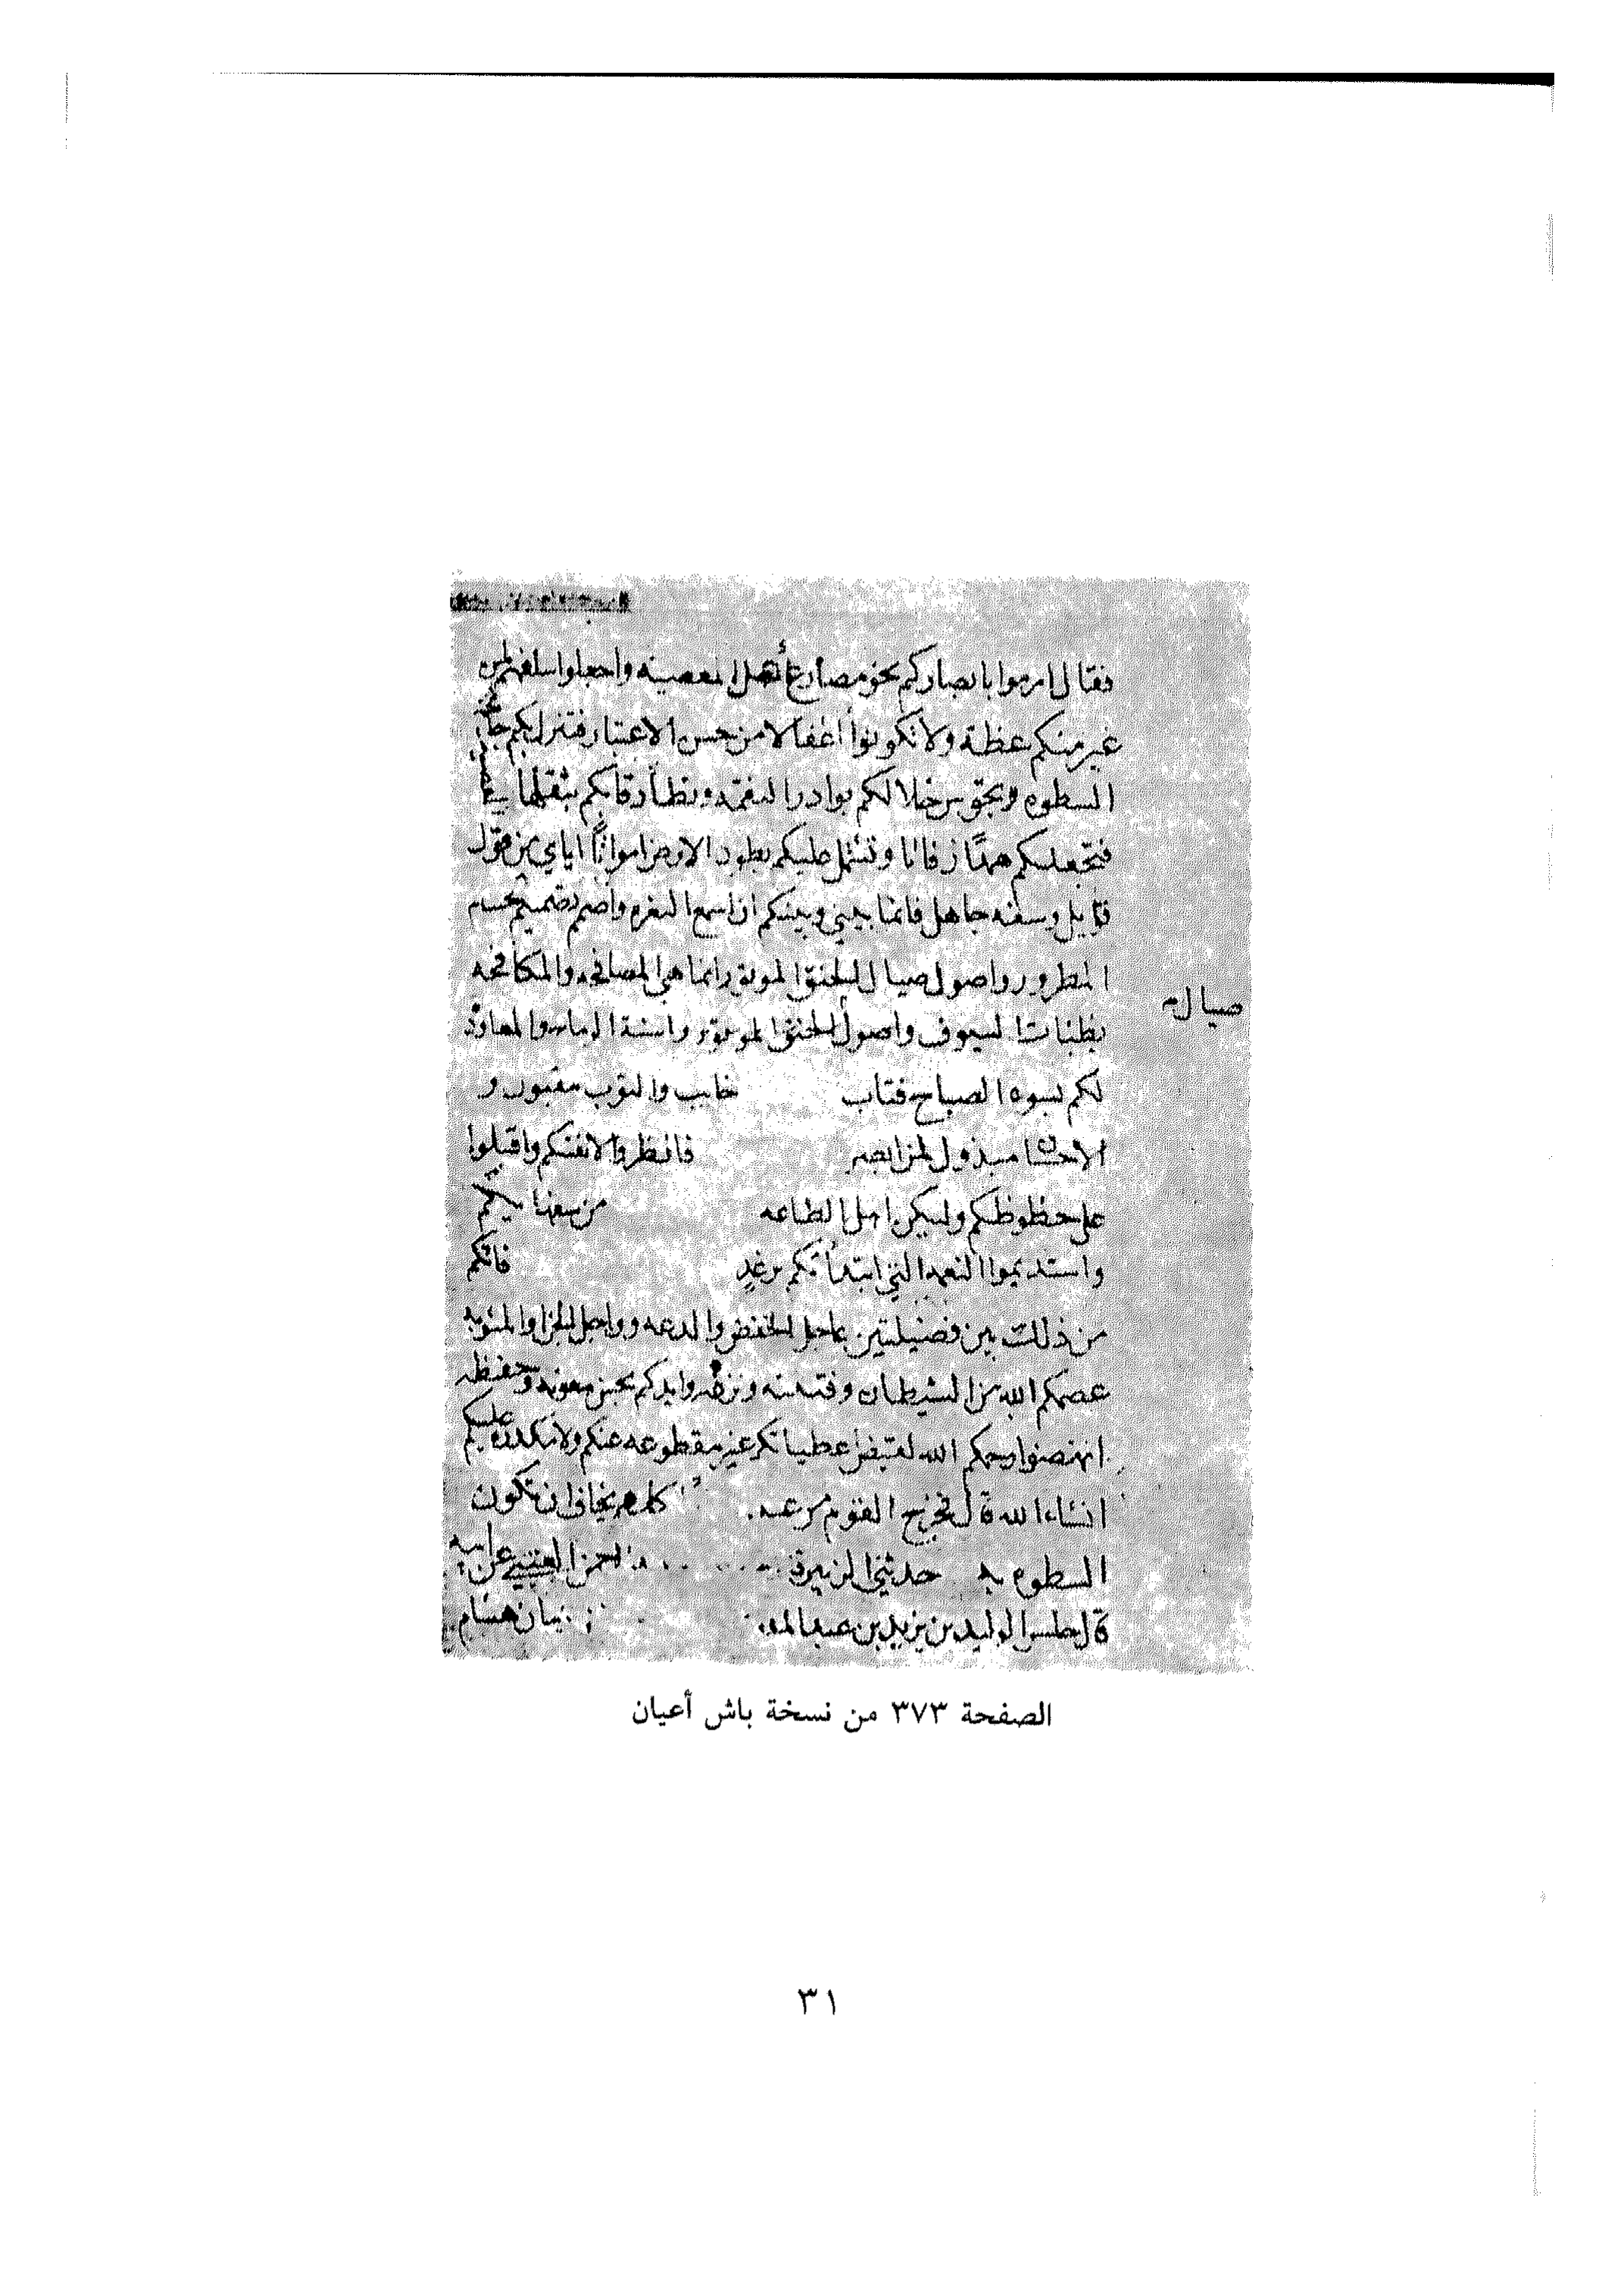 فقال ارموا بابصاركم نحو مصارع أهل المعصيه واجعلوا سلفهم لمن
غبر منكم عظة ولا تكونوا أغفالا من حسن الاعتبار فتنزل بكم
السطوه وتجوس خلالكم بوادر النقمه وتطأ رقابكم بثقلها
فتجعلكم همدًا رفاتا وتشتمل عليكم بطون الارض امواتًا اياي من قول
قايل وسفه جاهل فانما بيني وبينكم ان اسمع النغره واصمم تصميم الحسام
المطرور واصول صيال الحنق الموتور وانما هي المصافحه والمكافحه
صيال
بظبات السيوف واسنة الرماح والمعاودة
لكم بسوء الصباح فتاب خايب والتوب مقبول و
الاحسان مبذول لمن ابصر فانظروا لانفسكم واقبلوا
على حظوظكم وليكن اهل الطاعه من سفهايكم
واستديموا النعمه التي ابتدأتكم برغد فانكم
من ذلك بين فضيلتين عاجل الخفض والدعه واجل الجزا والمثوبه
عصمكم الله من الشيطان وفتنته ونزغه وايدكم بحسن معونته وحفظه
انهضوا رحمكم الله لقبض اعطياتكم غير مقطوعه عنكم ولا مكدره عليكم
انشاء الله قال فخرج القوم من عنده كلهم يخاف ان تكون
السطوه به حدثني الزبير عن ابيه
قال جلس الوليد بن يزيد بن عبد هشام
الصفحة ٣٧٣ من نسخة باش أعيان
٣١